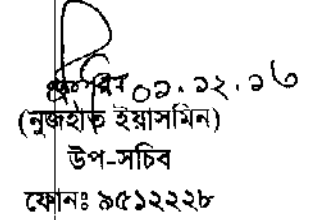 ০১.১২.১৬
(নুজহাত ইয়াসমিন)
উপ-সচিব
ফোনঃ ৯৫১২২২৮